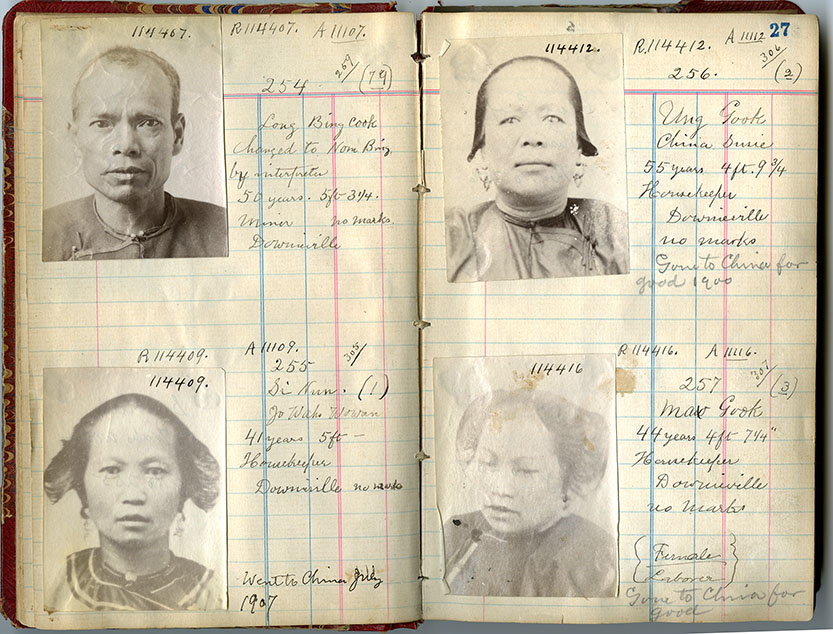 114407.
R114407. A 11107.
254 259 (79)
Long Bing Cook
Changed to Nom Bing
by interpreter
50 years. 5ft 3 1/4.
Miner no marks.
Downieville
R 114409. A 11109.
114409.
255 305
Di Nun. (1)
Jo Wahs Wowan
41 years 5ft —
Housekeeper
Downieville no marks
Went to China July
1907
27
114412.
R.114412. A 11112
256. 306 (2)
Ung Gook
China Susie
55 years 4ft. 9 3/4
Housekeeper
Downieville
no marks
Gone to China for
good 1900
114416
R114416. A 11116.
257 307 (3)
Mav Gook
44 years 4ft 7 1/4"
Housekeeper
Downieville
no marks
{Female}
{Laborer}
Gone to China for
good